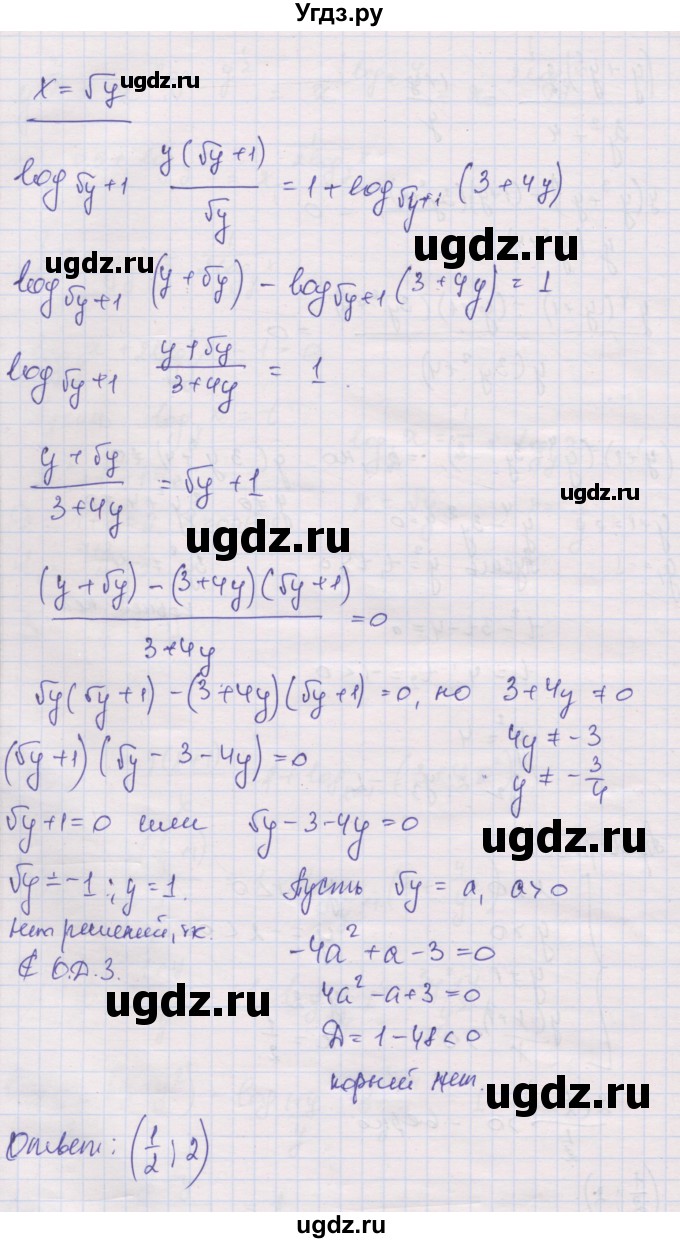 Угдз.ру
ugdz.ru
x = √y
log_{√y+1} y(√y+1)/√y = 1 + log_{√y+1} (3+4y)
ugdz.ru
ugdz.ru
log_{√y+1} (y+√y) - log_{√y+1} (3+4y) = 1
log_{√y+1} (y+√y)/(3+4y) = 1.
(y+√y)/(3+4y) = √y+1
ugdz.ru
ugdz.ru
((y+√y)-(3+4y)(√y+1))/(3+4y) = 0
√y(√y+1)-(3+4y)(√y+1)=0, но 3+4y ≠ 0
4y ≠ -3
(√y+1)(√y-3-4y)=0
y ≠ -3/4
√y+1=0 или √y-3-4y=0
ugdz.ru
√y=-1; y=1. Пусть √y = a, a>0
Нет решений, т.к.
∉ О.Д.З.
-4a²+a-3=0
ugdz.ru
4a²-a+3=0
Д=1-48<0
корней нет.
ugdz.ru
Ответ: (1/2; 2)
ugdz.ru
ugdz.ru